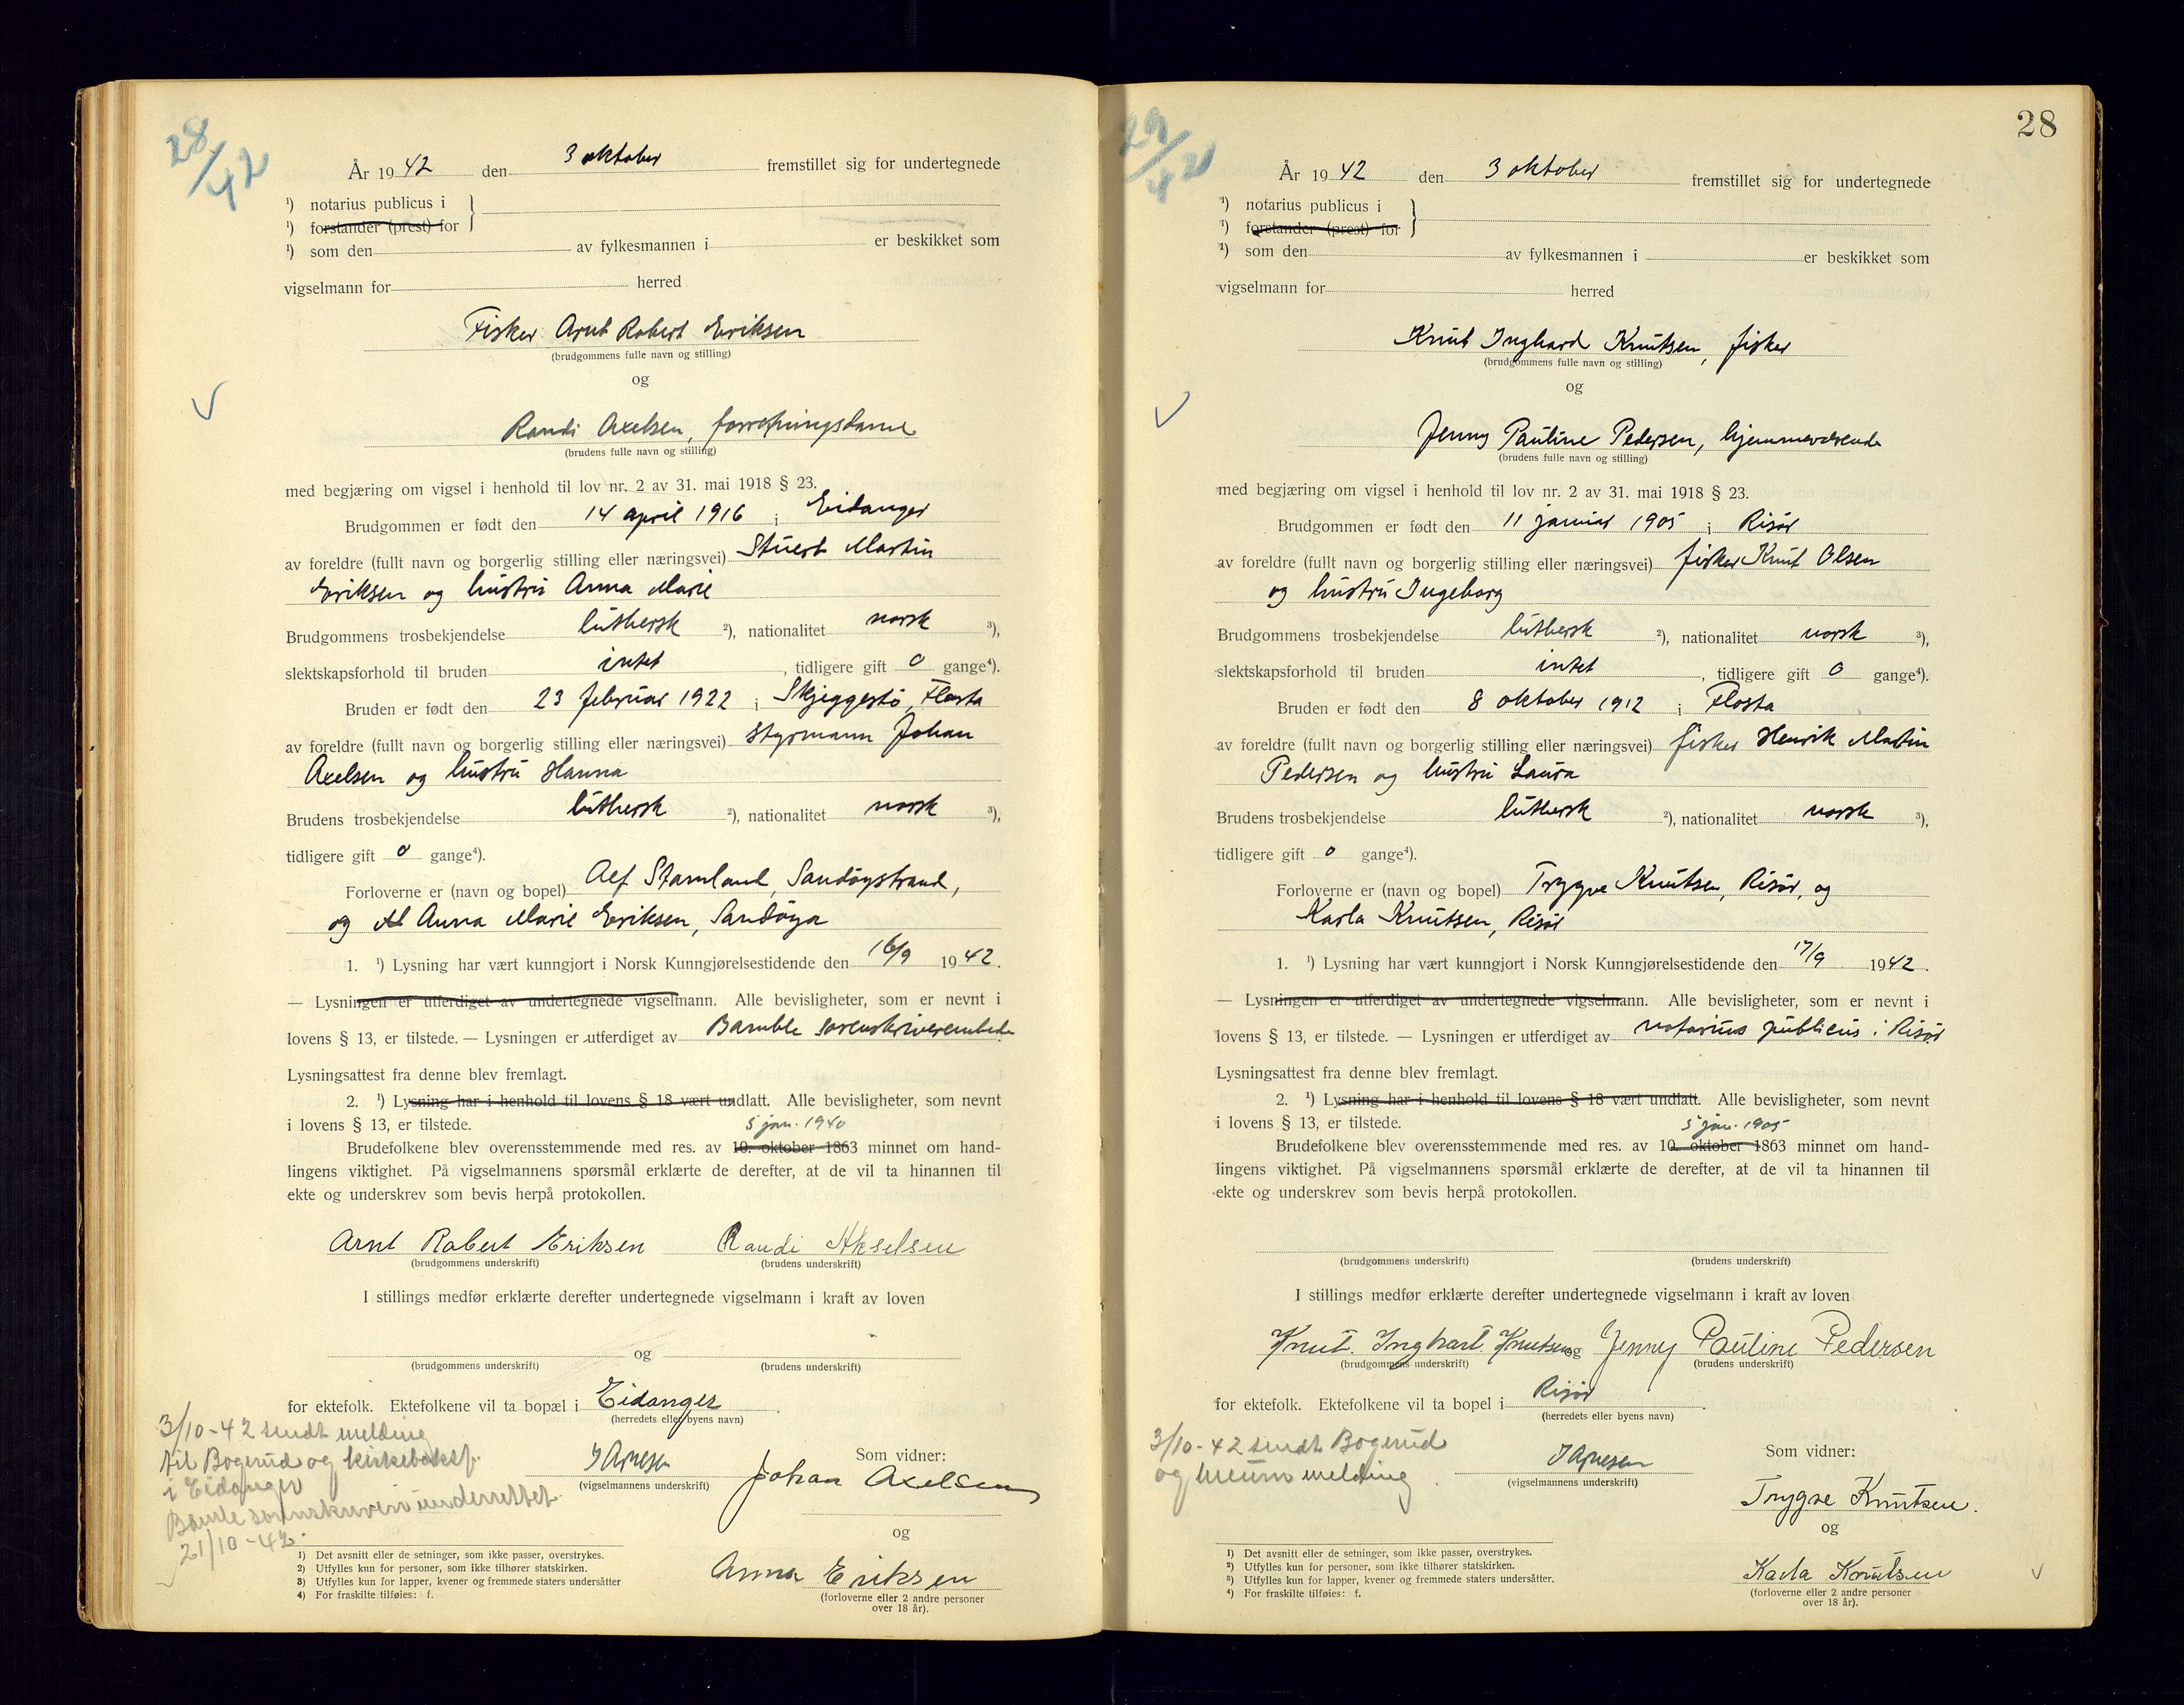 28/42
År 1942 den 3 oktober fremstillet sig for undertegnede
¹) notarius publicus i
¹) forstander (prest) for
¹) som den av fylkesmannen i er beskikket som
vigselmann for herred
Fisker Arnt Robert Eriksen
(brudgommens fulle navn og stilling)
og
Randi Axelsen, forretningsdame
(brudens fulle navn og stilling)
med begjæring om vigsel i henhold til lov nr. 2 av 31. mai 1918 § 23.
Brudgommen er født den 14 april 1916 i Eidanger
av foreldre (fullt navn og borgerlig stilling eller næringsvei) Stuert Martin
Eriksen og hustru Anna Marie
Brudgommens trosbekjendelse luthersk ²), nationalitet norsk ³),
slektskapsforhold til bruden intet, tidligere gift 0 gange⁴).
Bruden er født den 23 februar 1922 i Skjeggestø, Flosta
av foreldre (fullt navn og borgerlig stilling eller næringsvei) styrmann Johan
Axelsen og hustru Hanna
Brudens trosbekjendelse luthersk ²), nationalitet norsk ³),
tidligere gift 0 gange⁴).
Forloverne er (navn og bopel) Alf Stamland, Sandøystrand,
og Anna Marie Eriksen, Sandøya
1. ¹) Lysning har vært kunngjort i Norsk Kunngjørelsestidende den 16/9 1942.
— Lysningen er utferdiget av undertegnede vigselmann. Alle bevisligheter, som er nevnt i
lovens § 13, er tilstede. — Lysningen er utferdiget av Bamble sorenskriverembede
Lysningsattest fra denne blev fremlagt.
2. ¹) Lysning har i henhold til lovens § 18 vært undlatt. Alle bevisligheter, som nevnt
i lovens § 13, er tilstede.
5 jan. 1940
Brudefolkene blev overensstemmende med res. av 10. oktober 1863 minnet om hand-
lingens viktighet. På vigselmannens spørsmål erklærte de derefter, at de vil ta hinannen til
ekte og underskrev som bevis herpå protokollen.
Arnt Robert Eriksen Randi Akselsen
(brudgommens underskrift) (brudens underskrift)
I stillings medfør erklærte derefter undertegnede vigselmann i kraft av loven
og
(brudgommens underskrift) (brudens underskrift)
for ektefolk. Ektefolkene vil ta bopæl i Eidanger.
(herredets eller byens navn)
3/10-42 sendt melding
til Bogerud og kirkeboksf.
i Eidanger
Bamle sorenskriver underrettet
21/10-42.
Som vidner:
(vigselmannens underskrift)
Johan Axelsen
og
Anna Eriksen
(forloverne eller 2 andre personer
over 18 år).
1) Det avsnitt eller de setninger, som ikke passer, overstrykes.
2) Utfylles kun for personer, som ikke tilhører statskirken.
3) Utfylles kun for lapper, kvener og fremmede staters undersåtter
4) For fraskilte tilføies: f.
28
29/42
År 1942 den 3 oktober fremstillet sig for undertegnede
¹) notarius publicus i
¹) forstander (prest) for
¹) som den av fylkesmannen i er beskikket som
vigselmann for herred
Knut Inghard Knutsen, fisker
(brudgommens fulle navn og stilling)
og
Jenny Pauline Pedersen, hjemmeværende
(brudens fulle navn og stilling)
med begjæring om vigsel i henhold til lov nr. 2 av 31. mai 1918 § 23.
Brudgommen er født den 11 januar 1905 i Risør
av foreldre (fullt navn og borgerlig stilling eller næringsvei) fisker Knut Olsen
og hustru Ingeborg
Brudgommens trosbekjendelse luthersk ²), nationalitet norsk ³),
slektskapsforhold til bruden intet, tidligere gift 0 gange⁴).
Bruden er født den 8 oktober 1912 i Flosta
av foreldre (fullt navn og borgerlig stilling eller næringsvei) fisker Henrik Martin
Pedersen og hustru Laura
Brudens trosbekjendelse luthersk ²), nationalitet norsk ³),
tidligere gift 0 gange⁴).
Forloverne er (navn og bopel) Trygve Knutsen, Risør, og
Karla Knutsen, Risør
1. ¹) Lysning har vært kunngjort i Norsk Kunngjørelsestidende den 17/9 1942.
— Lysningen er utferdiget av undertegnede vigselmann. Alle bevisligheter, som er nevnt i
lovens § 13, er tilstede. — Lysningen er utferdiget av notarius publicus i Risør
Lysningsattest fra denne blev fremlagt.
2. ¹) Lysning har i henhold til lovens § 18 vært undlatt. Alle bevisligheter, som nevnt
i lovens § 13, er tilstede.
5 jan. 1905
Brudefolkene blev overensstemmende med res. av 10. oktober 1863 minnet om hand-
lingens viktighet. På vigselmannens spørsmål erklærte de derefter, at de vil ta hinannen til
ekte og underskrev som bevis herpå protokollen.
(brudgommens underskrift) (brudens underskrift)
I stillings medfør erklærte derefter undertegnede vigselmann i kraft av loven
Knut. Inghart. Knutsen og Jenny Pauline Pedersen
(brudgommens underskrift) (brudens underskrift)
for ektefolk. Ektefolkene vil ta bopel i Risør.
(herredets eller byens navn)
3/10-42 sendt Bogerud
og melding
Som vidner:
(vigselmannens underskrift)
Trygve Knutsen.
og
Karla Knutsen
(forloverne eller 2 andre personer
over 18 år).
1) Det avsnitt eller de setninger, som ikke passer, overstrykes.
2) Utfylles kun for personer, som ikke tilhører statskirken.
3) Utfylles kun for lapper, kvener og fremmede staters undersåtter.
4) For fraskilte tilføies: f.